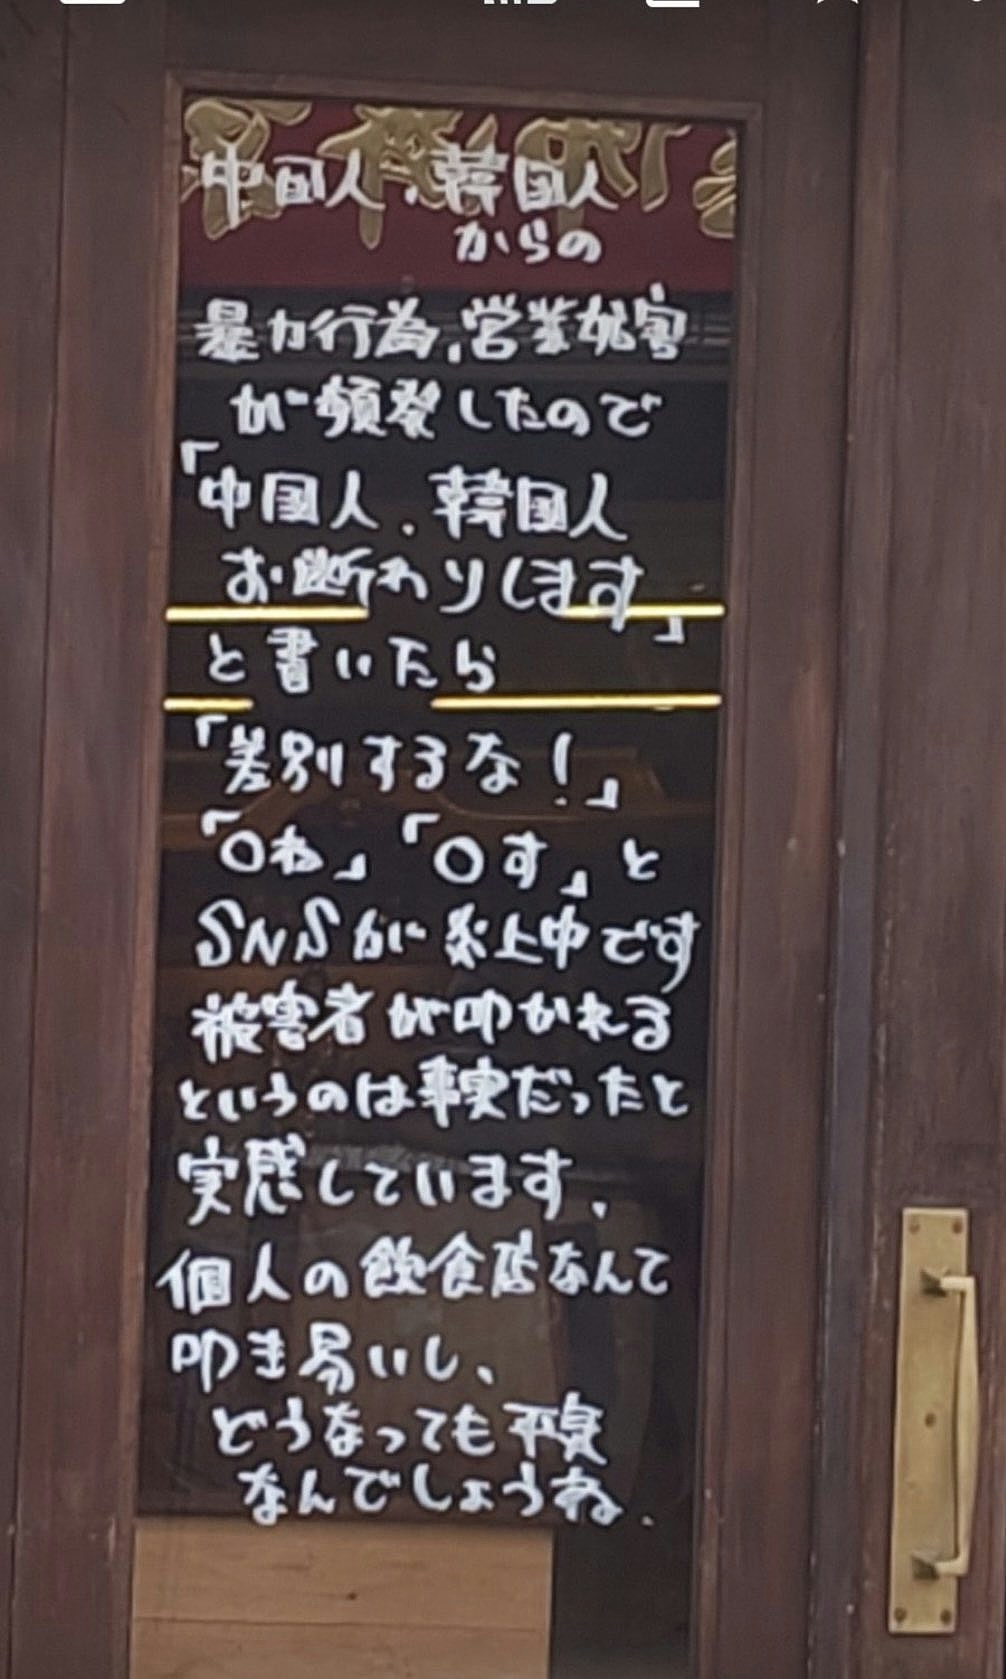 中国人、韓国人
からの
暴力行為、営業妨害
が頻発したので
「中国人、韓国人
お断わりします」
と書いたら
「差別するな！」
「〇ね」「〇す」と
SNSが炎上中です
被害者が叩かれる
というのは事実だったと
実感しています。
個人の飲食店なんて
叩き易いし、
どうなっても平気
なんでしょうね。